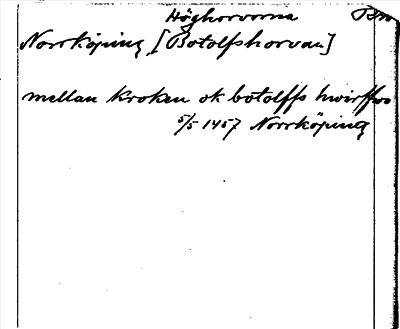 Höghorvorna
Norrköping [Botolfshorvan]
mellan kroken ok botolffs hwirffwo
5/5 1457 Norrköping